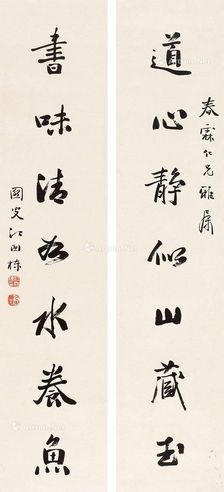 春霖仁兄雅屬
道心静似山藏玉
書味清於水養魚
國史江國棟